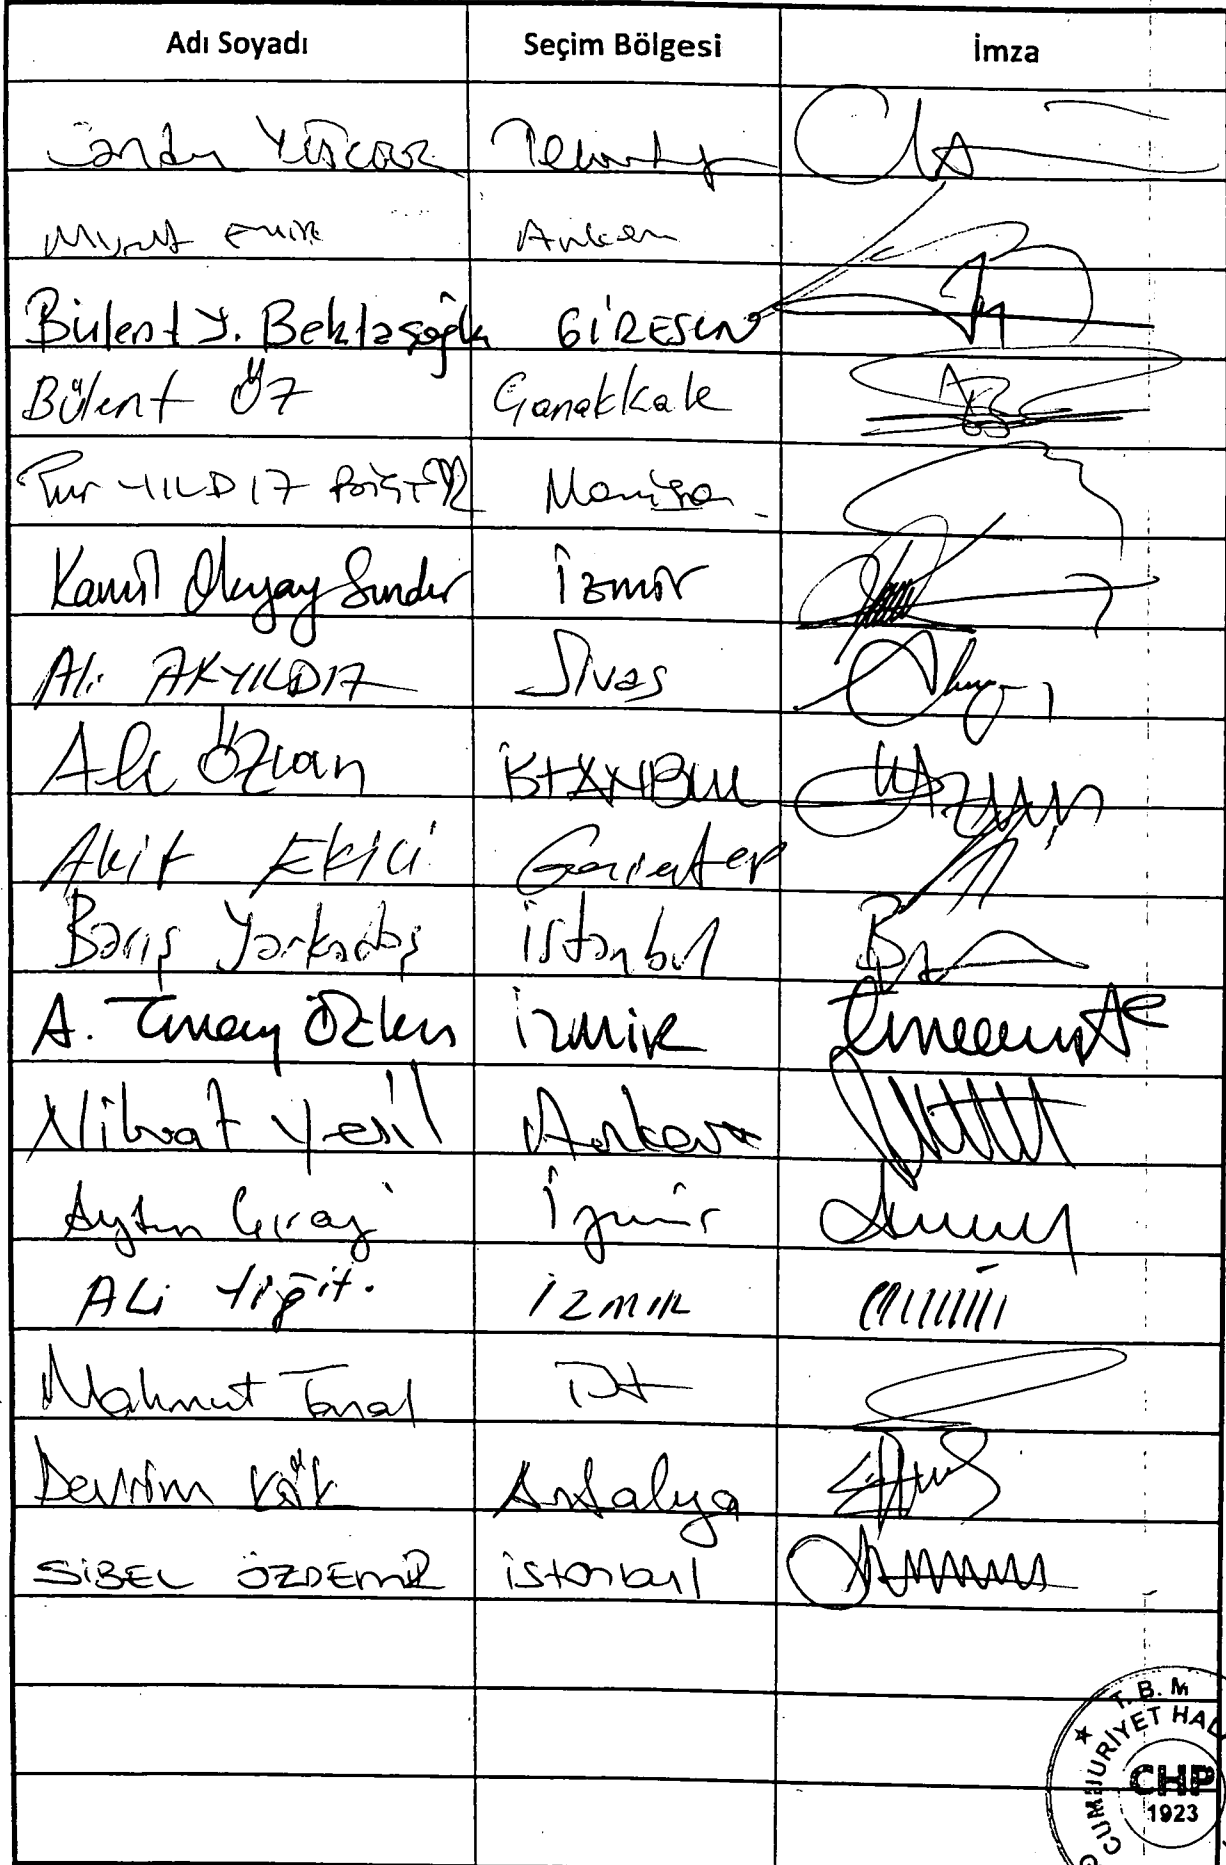 Adı Soyadı Seçim Bölgesi İmza
Candan Yüceer Tekirdağ
Murat Emir Ankara
Bülent Y. Bektaşoğlu GİRESUN
Bülent Öz Çanakkale
YILDIZ Manisa
Kamil Okyay Sındır İzmir
Ali AKYILDIZ Sivas
Ali Özcan İSTANBUL
Akif EKİCİ Gaziantep
Barış Yarkadaş İstanbul
A. Tuncay Özkan İZMİR
Nihat Yeşil Ankara
Aytun Çıray İzmir
ALİ Yiğit. İZMİR
Mahmut Tanal İst
Devrim Kök Antalya
SİBEL ÖZDEMİR İstanbul
T.B.M
CUMHURİYET HAL
CHP
1923